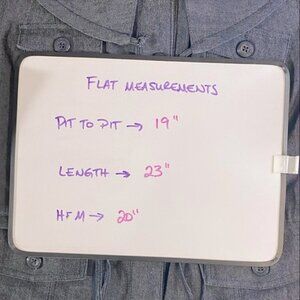 FLAT MEASUREMENTS
PIT TO PIT → 19"
LENGTH → 23"
HEM → 20"